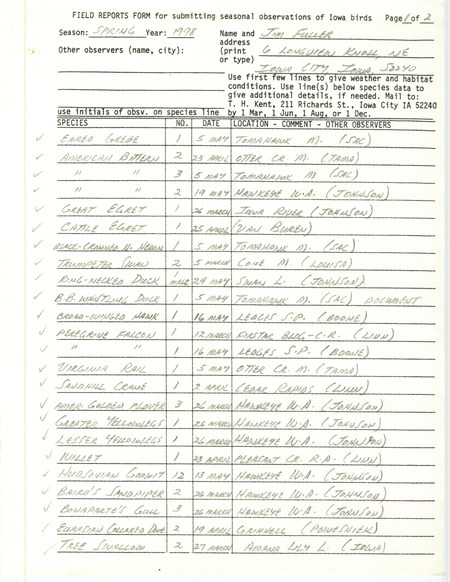 FIELD REPORTS FORM for submitting seasonal observations of Iowa birds Page 1 of 2
Season: SPRING Year: 1998 Name and JIM FULLER
address
Other observers (name, city): (print 6 LONGVIEW KNOLL, NE
or type) IOWA CITY IOWA, 52240
Use first few lines to give weather and habitat
conditions. Use line(s) below species data to
give additional details, if needed. Mail to:
T. H. Kent, 211 Richards St., Iowa City IA 52240
use initials of obsv. on species line by 1 Mar, 1 Jun, 1 Aug, or 1 Dec.
SPECIES NO. DATE LOCATION - COMMENT - OTHER OBSERVERS
✓ EARED GREBE 1 5 MAY TOMAHAWK M. (SAC)
✓ AMERICAN BITTERN 2 23 APRIL OTTER CR M. (TAMA)
✓ " " 3 5 MAY TOMAHAWK M (SAC)
✓ " " 2 19 MAY HAWKEYE W.A. (JOHNSON)
✓ GREAT EGRET 1 26 MARCH IOWA RIVER (JOHNSON)
✓ CATTLE EGRET 1 25 APRIL (VAN BUREN)
✓ BLACK-CROWNED N. HERON 1 5 MAY TOMAHAWK M. (SAC)
✓ TRUMPETER SWAN 2 5 MARCH CONE M. (LOUISA)
✓ RING-NECKED DUCK 1 MALE 24 MAY SWAN L. (JOHNSON)
✓ B.B. WHISTLING DUCK 1 5 MAY TOMAHAWK M. (SAC) DOCUMENT
✓ BROAD-WINGED HAWK 1 16 MAY LEDGES S.P. (BOONE)
✓ PEREGRINE FALCON 1 12 MARCH FIRSTAR BLDG-C.R. (LINN)
✓ " " 1 16 MAY LEDGES S.P. (BOONE)
✓ VIRGINIA RAIL 1 5 MAY OTTER CR. M. (TAMA)
✓ SANDHILL CRANE 1 2 APRIL CEDAR RAPIDS (LINN)
✓ AMER GOLDEN PLOVER 3 26 MARCH HAWKEYE W.A. (JOHNSON)
✓ GREATER YELLOWLEGS 1 26 MARCH HAWKEYE W.A. (JOHNSON)
✓ LESSER YELLOWLEGS 1 26 MARCH HAWKEYE W.A. (JOHNSON)
✓ WILLET 1 23 APRIL PLEASANT CR. R.A. (LINN)
✓ HUDSONIAN GODWIT 12 13 MAY HAWKEYE W.A. (JOHNSON)
✓ BAIRD'S SANDPIPER 2 26 MARCH HAWKEYE W.A. (JOHNSON)
✓ BONAPARTE'S GULL 3 26 MARCH HAWKEYE W.A. (JOHNSON)
✓ EURASIAN COLLARED DOVE 2 19 APRIL GRINNELL (POWESHIEK)
✓ TREE SWALLOW 2 27 MARCH AMANA LILY L. (IOWA)